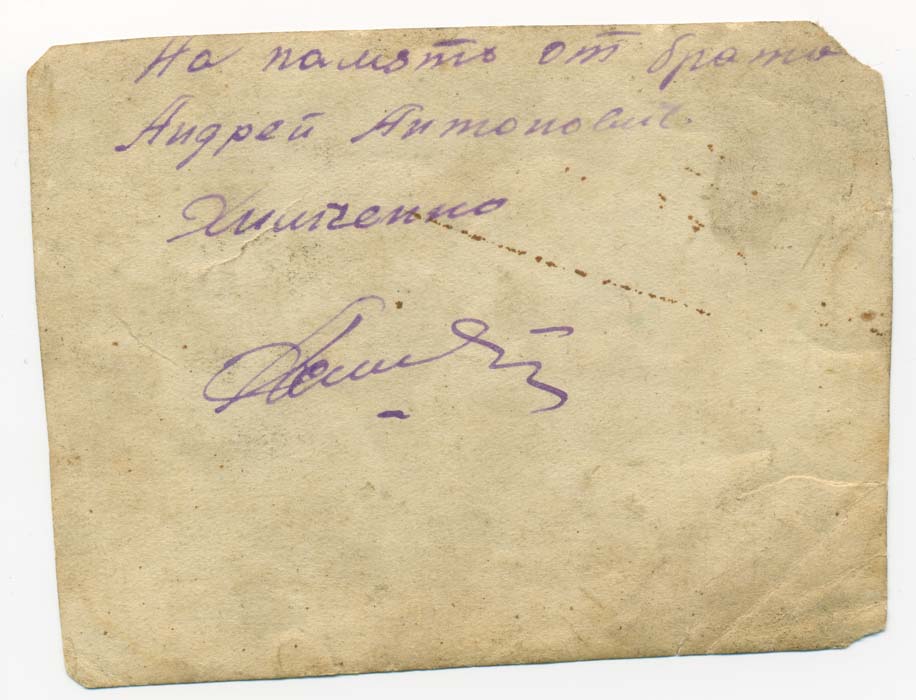 На память от брата
Андрей Антонович
Химченко